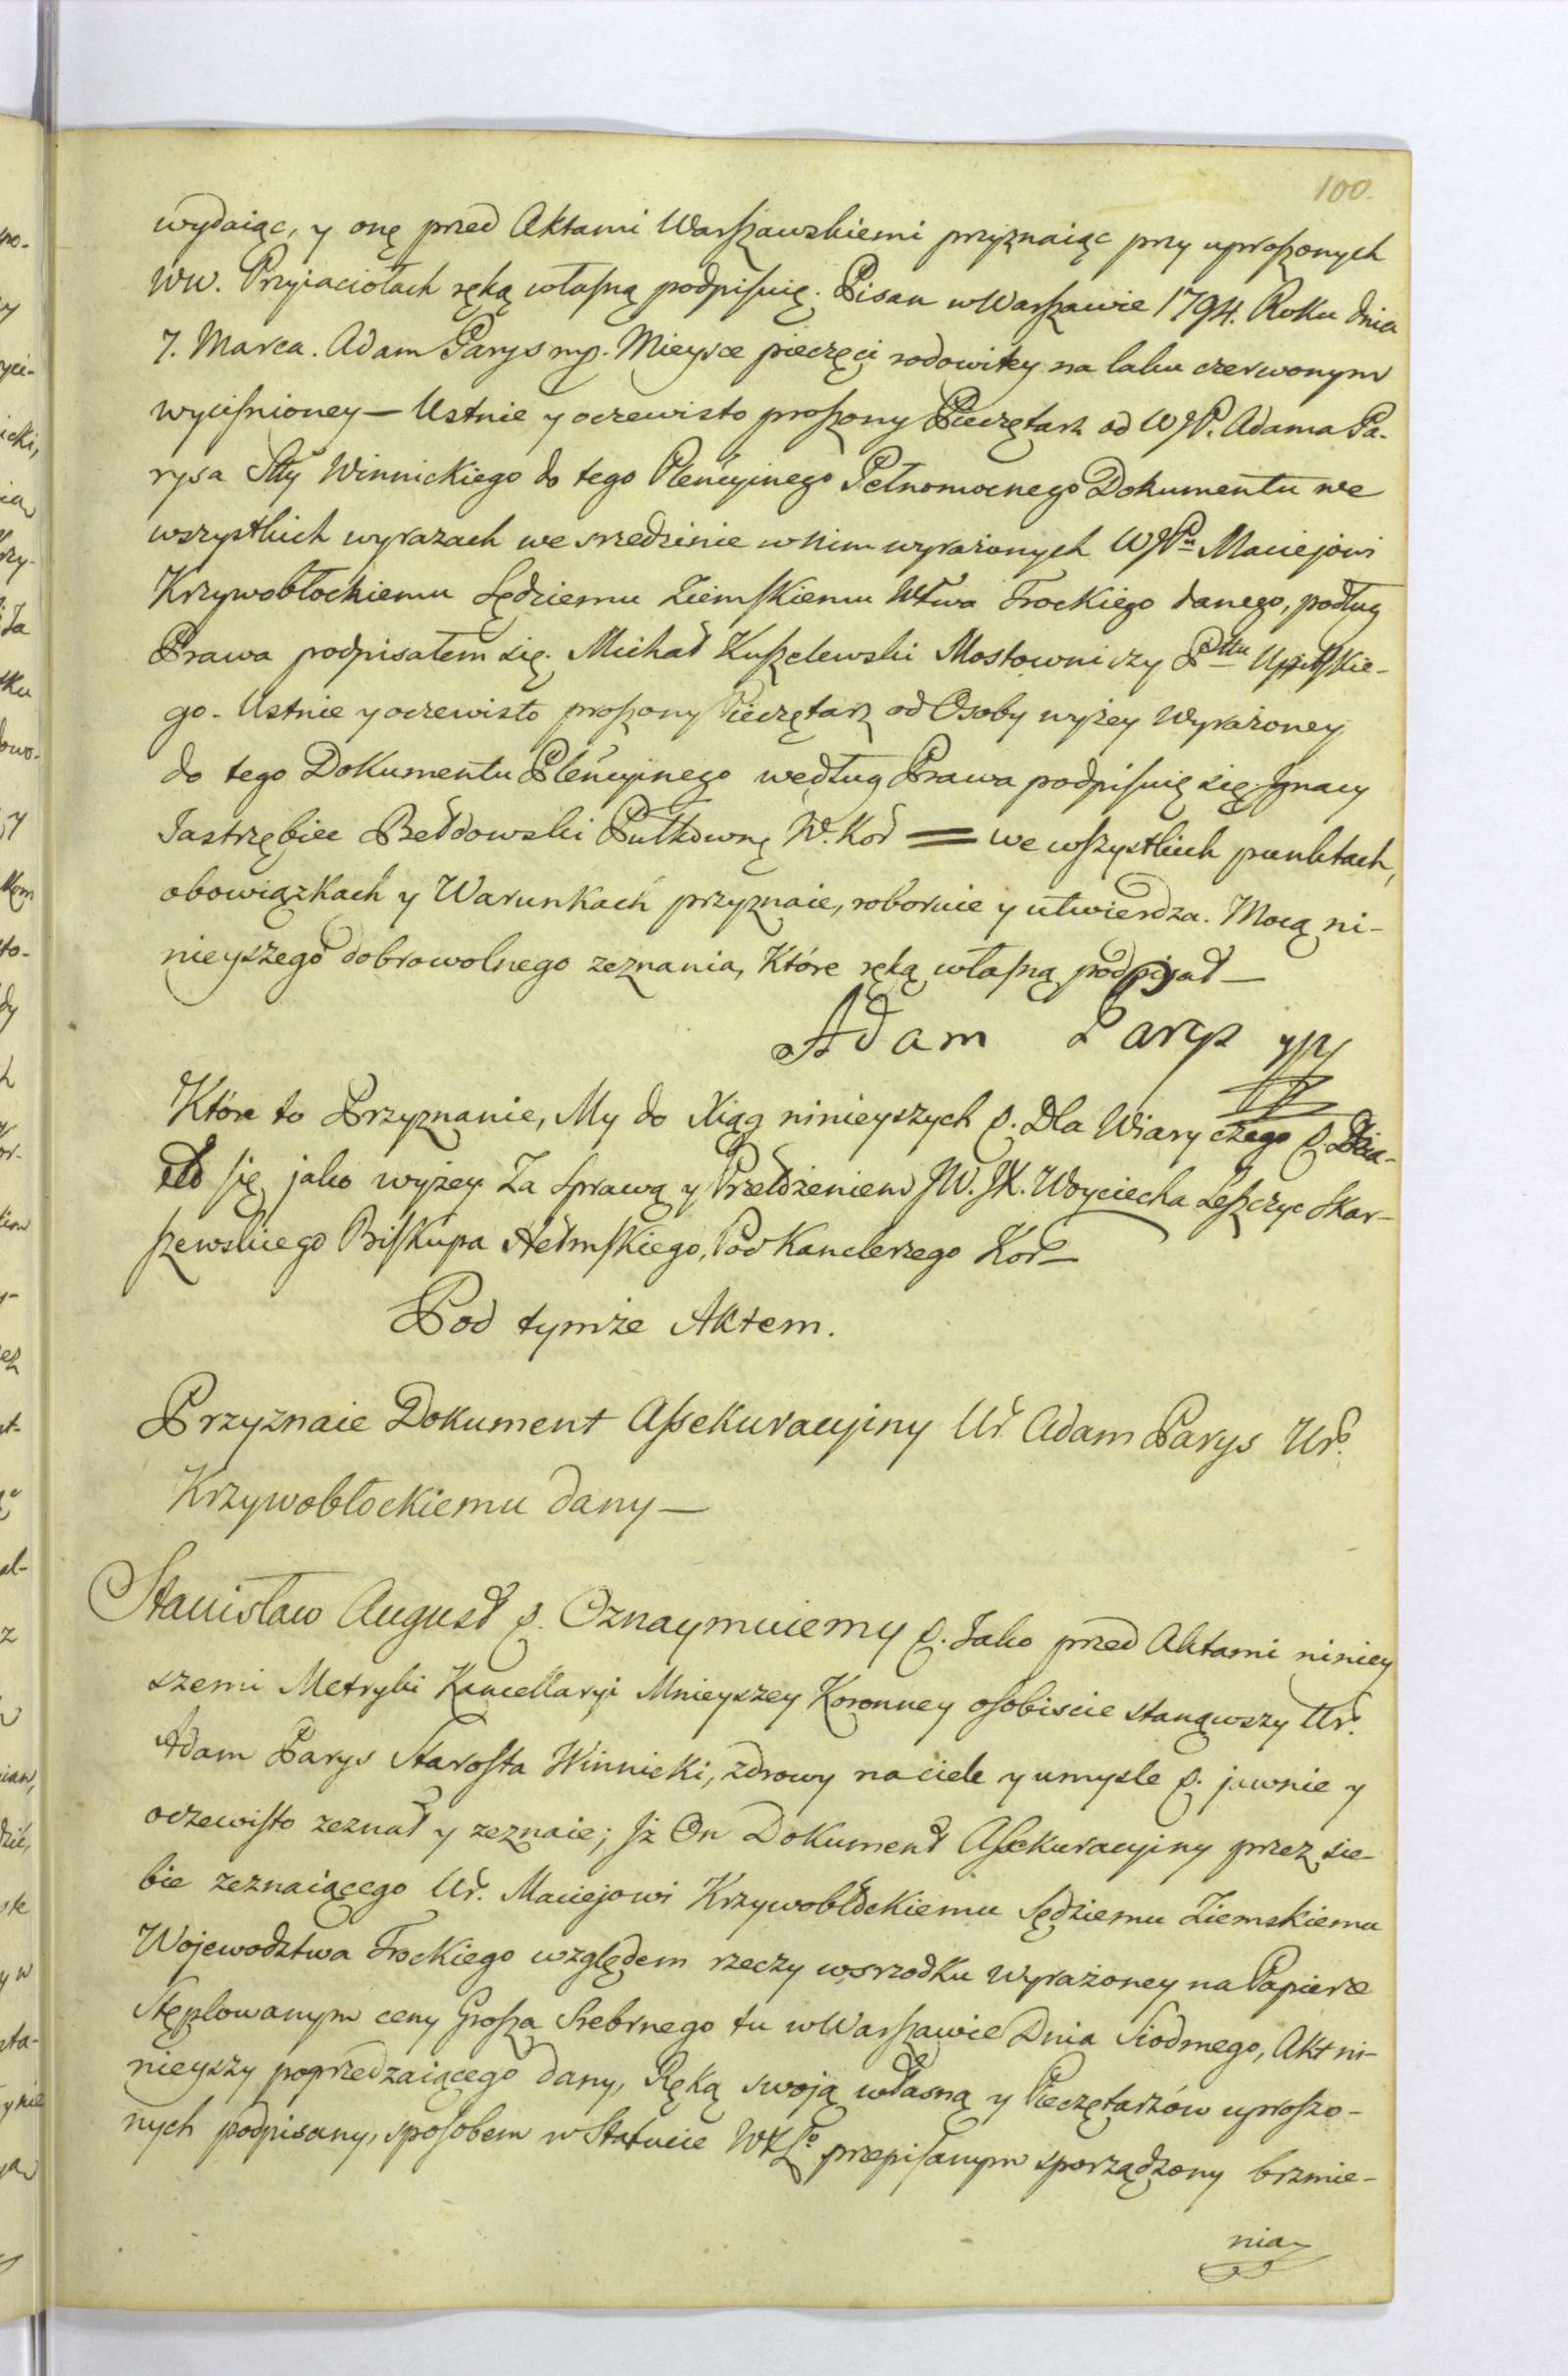 100.
wydaiąc, y onę przed Aktami Warszawskiemi przyznaiąc przy uproszonych
WW. Przyiaciołach ręką własną podpisuię. Pisan w Warszawie 1794. Roku dnia
7. Marca. Adam Parys mp. Mieysce pieczęci rodowitey na laku czerwonym
wycisnioney — Ustnie y oczewisto proszony Pieczętarz od WJP. Adama Pa-
rysa Stty Winnickiego do tego Plencyinego Pełnomocnego Dokumentu we
wszystkich wyrazach we srzedzinie w nim wyrażonych WJPu Maciejowi
Krzywobłockiemu Sędziemu Ziemskiemu Wtwa Trockiego danego, podług
Prawa podpisałem się. Michał Kuszelewski Mostowniczy Pttu Upitskie-
go - Ustnie y oczewisto proszony Pieczętarz od Osoby wyżey wyrażoney
do tego Dokumentu Plencyinego według Prawa podpisuię się Jgnacy
Jastrzębiec Bełdowski Pułkowni W. Kor = we wszystkich punktach,
obowiązkach y Warunkach przyznaie, roboruie y utwierdza. Mocą ni-
nieyszego dobrowolnego zeznania, Które ręką własną podpisał —
Adam Parys mp
Które to Przyznanie, My do Xiąg ninieyszych p. Dla Wiary czego p. Dzia-
ło się jako wyżey Za sprawą y Przełożeniem JW. JX. Woyciecha Leszczyc Skar-
szewskiego Biskupa Hełmskiego, Pod Kanclerzego Kor —
Pod tymże Aktem.
Przyznaie Dokument Assekuracyiny Ur. Adam Parys Ur.
Krzywobłockiemu dany —
Stanisław August p. Oznaymuiemy p. Jako przed Aktami niniey
szemi Metryki Kancellaryi Mnieyszey Koronney osobiscie stanąwszy Ur.
Adam Parys Starosta Winnicki, zdrowy na ciele y umysle p. jawnie y
oczewisto zeznał y zeznaie; Jż On Dokument Assekuracyiny przez sie-
bie zeznaiącego Ur. Maciejowi Krzywobłockiemu Sędziemu Ziemskiemu
Wojewodztwa Trockiego względem rzeczy wsrzodku wyrażoney na Papierze
Stęplowanym ceny Grosza Srebrnego tu w Warszawie Dnia Siodmego, Akt ni-
nieyszy poprzedzaiącego dany, Ręką swoją własną y Pieczętarzów uproszo-
nych podpisany, sposobem w Statucie WXLo przepisanym sporządzony brzmie-
nia